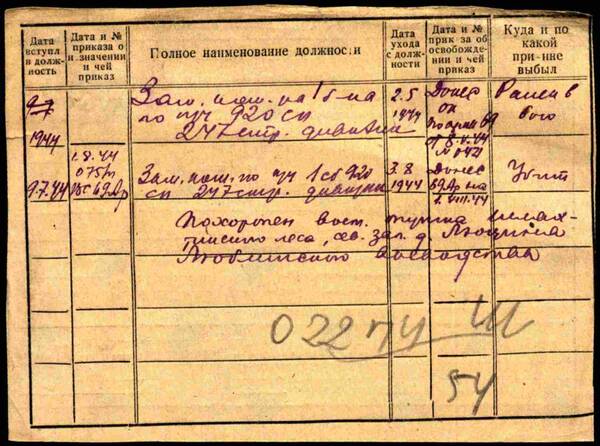 Дата вступл в должность
Дата и № приказа о назначении и чей приказ
Полное наименование должности
Дата ухода с должности
Дата и № приказа об освобождении и чей приказ
Куда и по какой при-не выбыл
1944
Зам. ком. на 1 б-на
по пч 920 сп
247 стр. дивизии
2.5
1944
Донес
Ранен в
бою
9.7.44
1.8.44
075/п
ВС 69 Ар
Зам. ком. по пч 1 сб 920
сп 247 стр. дивизии
3.8
1944
Донес
69 Ар на
1.VIII.44
Убит
Похоронен вост. опушка
леса, сев. зап. д.
Люблинского воеводства
022 пч Ш
54